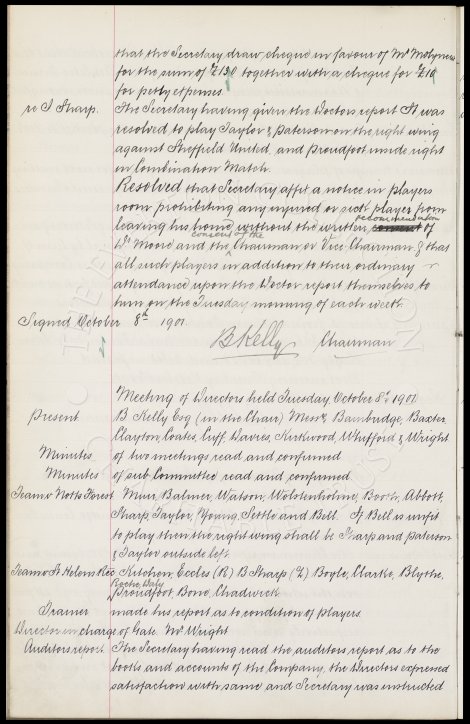 that the Secretary draw cheque in favour of Mr Molyneux
for the sum of £130 together with a cheque for £10
for petty expenses.
re J Sharp. The Secretary having given the Doctors report It was
resolved to play Taylor & Paterson on the right wing
against Sheffield United, and Proudfoot inside right
in Combination Match.
Resolved that Secretary affix a notice in players
room prohibiting any injured or sick player from
leaving his home without the written recommendation of
Dr Moore and the consent of the Chairman or Vice-Chairman & that
all such players in addition to their ordinary
attendance upon the Doctor report themselves to
him on the Tuesday morning of each week.
Signed October 8th 1901.
B Kelly Chairman
Meeting of Directors held Tuesday October 8th 1901
Present B Kelly Esq (in the Chair) Messrs Bainbridge, Baxter,
Clayton, Coates, Cuff, Davies, Kirkwood, Whifford & Wright
Minutes of two meetings read and confirmed
Minutes of sub Committee read and confirmed.
Team v Notts Forest Muir, Balmer, Watson, Wolstenholme, Booth, Abbott,
Sharp, Taylor, Young, Settle and Bell. If Bell is unfit
to play then the right wing shall be Sharp and Paterson
& Taylor outside left.
Team v St Helens Rec Kitchen, Eccles (R) B Sharp (L) Boyle, Clarke, Blythe,
Roche, Daly
Proudfoot, Bone, Chadwick
Trainer made his report as to condition of players.
Director in charge of Gate. Mr Wright
Auditors report The Secretary having read the auditors report as to the
books and accounts of the Company, the Directors expressed
satisfaction with same and Secretary was instructed